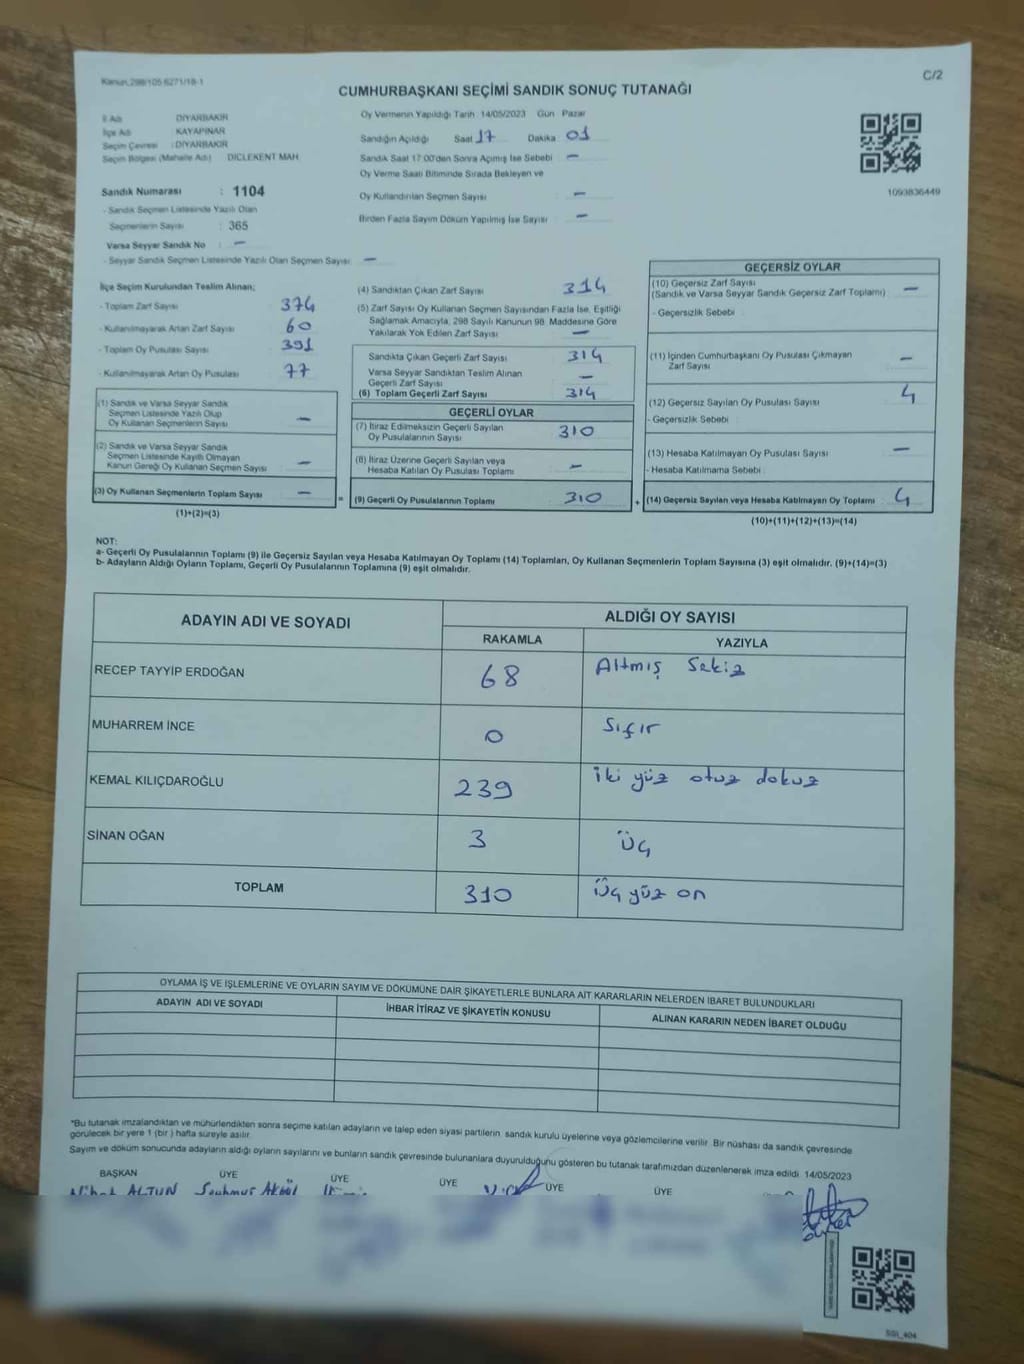 Kanun.298/105 6271/18-1
C/2
CUMHURBAŞKANI SEÇİMİ SANDIK SONUÇ TUTANAĞI
İl Adı DİYARBAKIR
İlçe Adı KAYAPINAR
Seçim Çevresi : DİYARBAKIR
Seçim Bölgesi (Mahalle Adı) DİCLEKENT MAH.
Sandık Numarası : 1104
- Sandık Seçmen Listesinde Yazılı Olan
Seçmenlerin Sayısı : 365
Varsa Seyyar Sandık No : –
- Seyyar Sandık Seçmen Listesinde Yazılı Olan Seçmen Sayısı: –
Oy Vermenin Yapıldığı Tarih 14/05/2023 Gün Pazar
Sandığın Açıldığı Saat 17 Dakika 01
Sandık Saat 17:00'den Sonra Açılmış İse Sebebi –
Oy Verme Saati Bitiminde Sırada Bekleyen ve
Oy Kullandırılan Seçmen Sayısı –
Birden Fazla Sayım Döküm Yapılmış İse Sayısı –
1093836449
İlçe Seçim Kurulundan Teslim Alınan;
- Toplam Zarf Sayısı 374
- Kullanılmayarak Artan Zarf Sayısı 60
- Toplam Oy Pusulası Sayısı 391
- Kullanılmayarak Artan Oy Pusulası 77
(1) Sandık ve Varsa Seyyar Sandık
Seçmen Listesinde Yazılı Olup
Oy Kullanan Seçmenlerin Sayısı –
(2) Sandık ve Varsa Seyyar Sandık
Seçmen Listesinde Kayıtlı Olmayan
Kanun Gereği Oy Kullanan Seçmen Sayısı –
(3) Oy Kullanan Seçmenlerin Toplam Sayısı –
(1)+(2)=(3)
(4) Sandıktan Çıkan Zarf Sayısı 314
(5) Zarf Sayısı Oy Kullanan Seçmen Sayısından Fazla İse, Eşitliği
Sağlamak Amacıyla, 298 Sayılı Kanunun 98. Maddesine Göre
Yakılarak Yok Edilen Zarf Sayısı –
Sandıkta Çıkan Geçerli Zarf Sayısı 314
Varsa Seyyar Sandıktan Teslim Alınan
Geçerli Zarf Sayısı –
(6) Toplam Geçerli Zarf Sayısı 314
GEÇERLİ OYLAR
(7) İtiraz Edilmeksizin Geçerli Sayılan
Oy Pusulalarının Sayısı 310
(8) İtiraz Üzerine Geçerli Sayılan veya
Hesaba Katılan Oy Pusulası Toplamı –
= (9) Geçerli Oy Pusulalarının Toplamı 310
GEÇERSİZ OYLAR
(10) Geçersiz Zarf Sayısı
(Sandık ve Varsa Seyyar Sandık Geçersiz Zarf Toplamı) –
- Geçersizlik Sebebi
(11) İçinden Cumhurbaşkanı Oy Pusulası Çıkmayan
Zarf Sayısı –
(12) Geçersiz Sayılan Oy Pusulası Sayısı 4
- Geçersizlik Sebebi
(13) Hesaba Katılmayan Oy Pusulası Sayısı –
- Hesaba Katılmama Sebebi
+ (14) Geçersiz Sayılan veya Hesaba Katılmayan Oy Toplamı 4
(10)+(11)+(12)+(13)=(14)
NOT:
a- Geçerli Oy Pusulalarının Toplamı (9) ile Geçersiz Sayılan veya Hesaba Katılmayan Oy Toplamı (14) Toplamları, Oy Kullanan Seçmenlerin Toplam Sayısına (3) eşit olmalıdır. (9)+(14)=(3)
b- Adayların Aldığı Oyların Toplamı, Geçerli Oy Pusulalarının Toplamına (9) eşit olmalıdır.
ADAYIN ADI VE SOYADI ALDIĞI OY SAYISI
RAKAMLA YAZIYLA
RECEP TAYYİP ERDOĞAN 68 Altmış Sekiz
MUHARREM İNCE 0 Sıfır
KEMAL KILIÇDAROĞLU 239 İki yüz otuz dokuz
SİNAN OĞAN 3 Üç
TOPLAM 310 Üç yüz on
OYLAMA İŞ VE İŞLEMLERİNE VE OYLARIN SAYIM VE DÖKÜMÜNE DAİR ŞİKAYETLERLE BUNLARA AİT KARARLARIN NELERDEN İBARET BULUNDUKLARI
ADAYIN ADI VE SOYADI İHBAR İTİRAZ VE ŞİKAYETİN KONUSU ALINAN KARARIN NEDEN İBARET OLDUĞU
*Bu tutanak imzalandıktan ve mühürlendikten sonra seçime katılan adayların ve talep eden siyasi partilerin sandık kurulu üyelerine veya gözlemcilerine verilir. Bir nüshası da sandık çevresinde
görülecek bir yere 1 (bir) hafta süreyle asılır.
Sayım ve döküm sonucunda adayların aldığı oyların sayılarını ve bunların sandık çevresinde bulunanlara duyurulduğunu gösteren bu tutanak tarafımızdan düzenlenerek imza edildi. 14/05/2023
BAŞKAN ÜYE ÜYE ÜYE ÜYE ÜYE
Nihat ALTUN